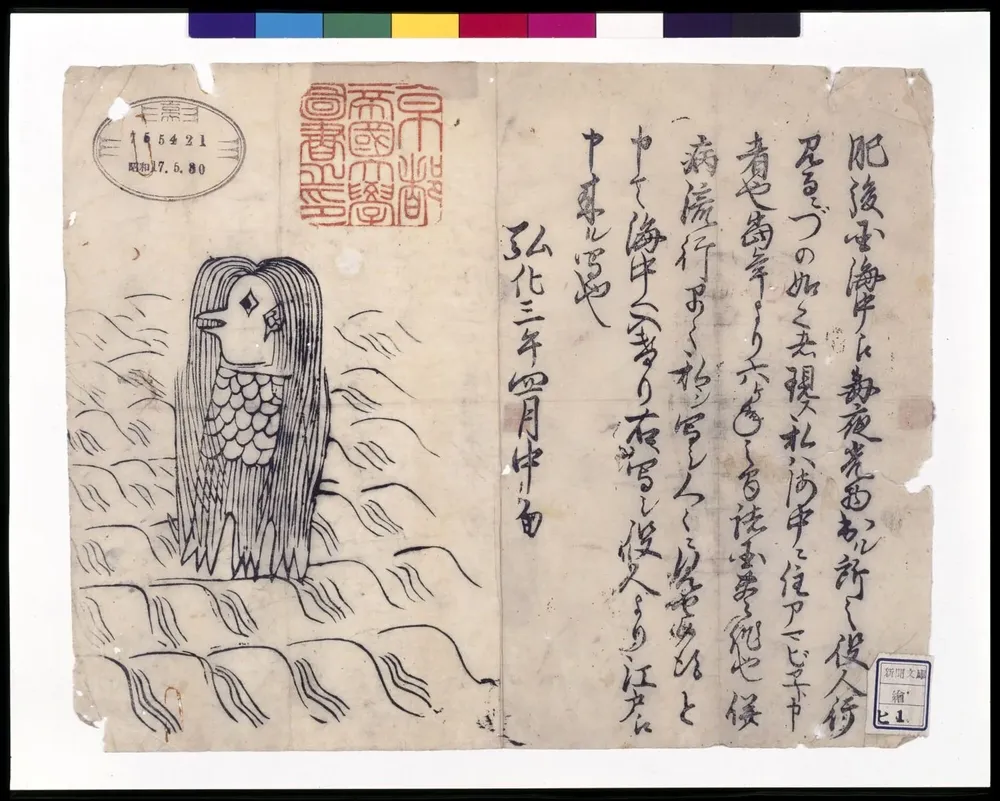 肥後国海中え毎夜光物出ル所之役人行
見るニづの如之者現ス私ハ海中ニ住アマビヱト申
者也當年より六ヶ年之間諸国豊作也併
病流行早々私シ写シ人々ニ見せ候得と
申て海中へ入けり右写シ役人より江戸え
申来ル写也
弘化三年四月中旬
京都
帝國大學
圖書之印
165421
昭和17.5.30
新聞文庫
繪
ヒ 1